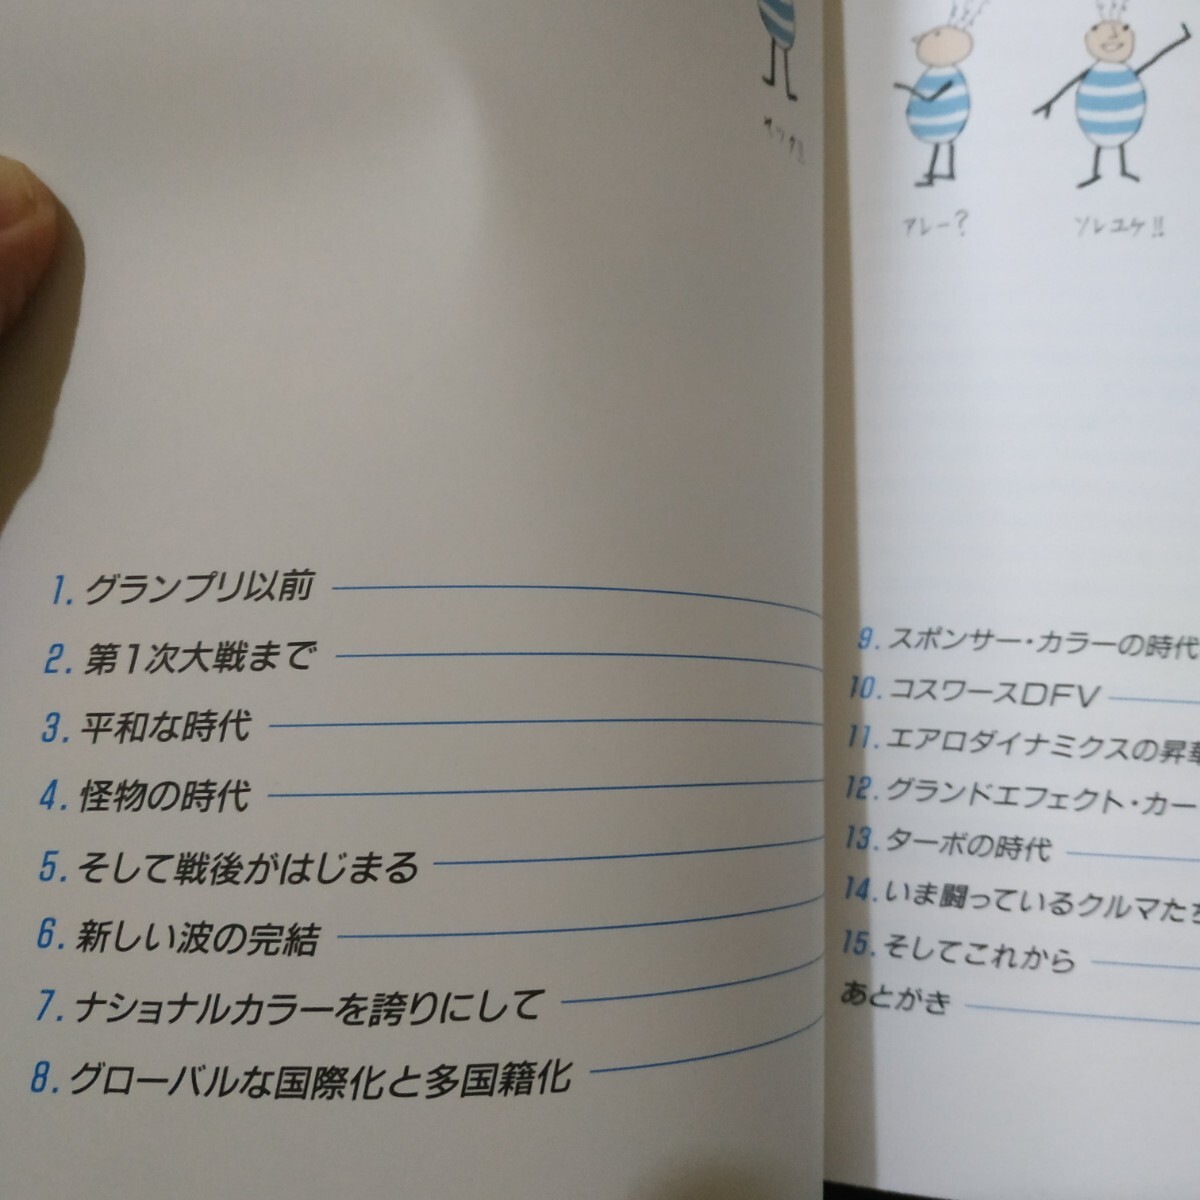 アレー?
ソレユケ!!
1. グランプリ以前
2. 第1次大戦まで
3. 平和な時代
4. 怪物の時代
5. そして戦後がはじまる
6. 新しい波の完結
7. ナショナルカラーを誇りにして
8. グローバルな国際化と多国籍化
9. スポンサー・カラーの時代
10. コスワースDFV
11. エアロダイナミクスの昇華
12. グランドエフェクト・カー
13. ターボの時代
14. いま闘っているクルマたち
15. そしてこれから
あとがき